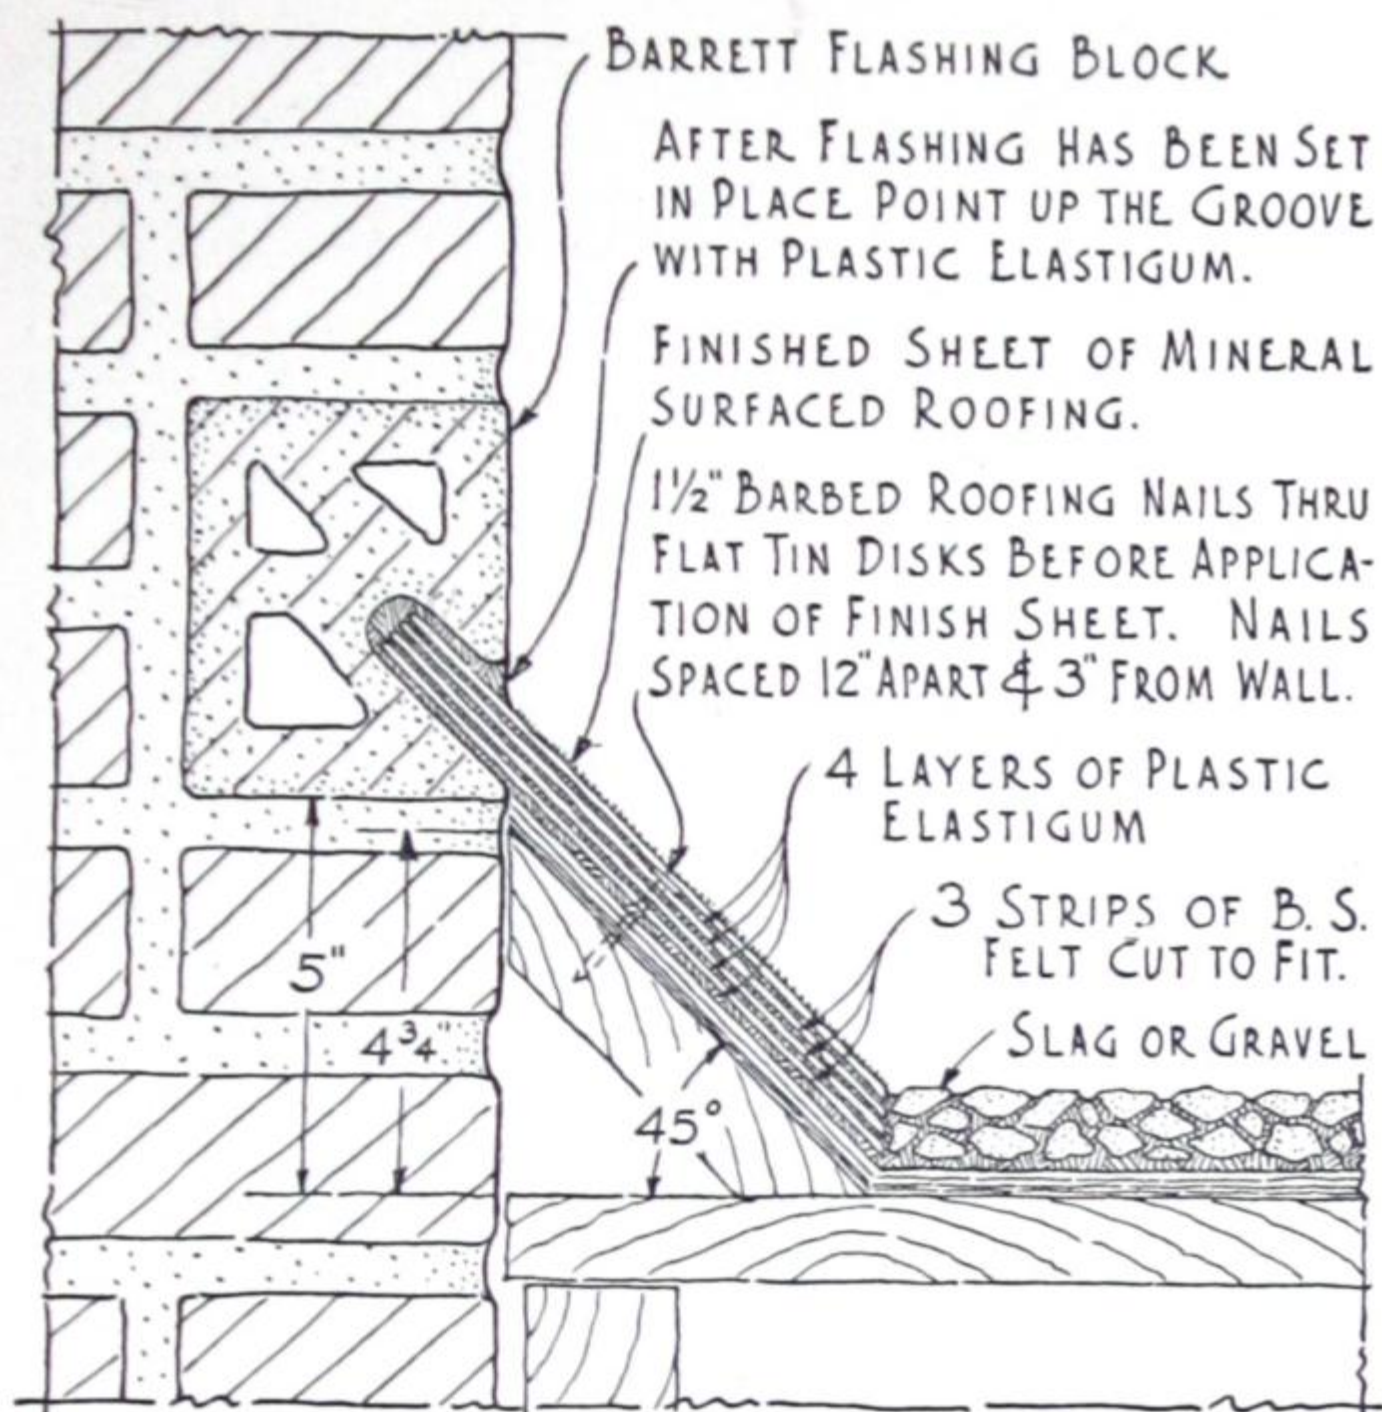 BARRETT FLASHING BLOCK
AFTER FLASHING HAS BEEN SET
IN PLACE POINT UP THE GROOVE
WITH PLASTIC ELASTIGUM.
FINISHED SHEET OF MINERAL
SURFACED ROOFING.
1½" BARBED ROOFING NAILS THRU
FLAT TIN DISKS BEFORE APPLICA-
TION OF FINISH SHEET. NAILS
SPACED 12" APART & 3" FROM WALL.
4 LAYERS OF PLASTIC
ELASTIGUM
3 STRIPS OF B. S.
FELT CUT TO FIT.
SLAG OR GRAVEL
5"
4¾"
45°